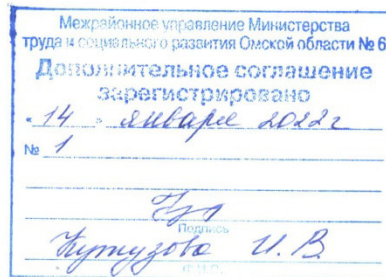 Межрайонное управление Министерства
труда и социального развития Омской области № 6
Дополнительное соглашение
зарегистрировано
"14" января 2022г
№ 1
Подпись
И. В.
Ф.И.О.